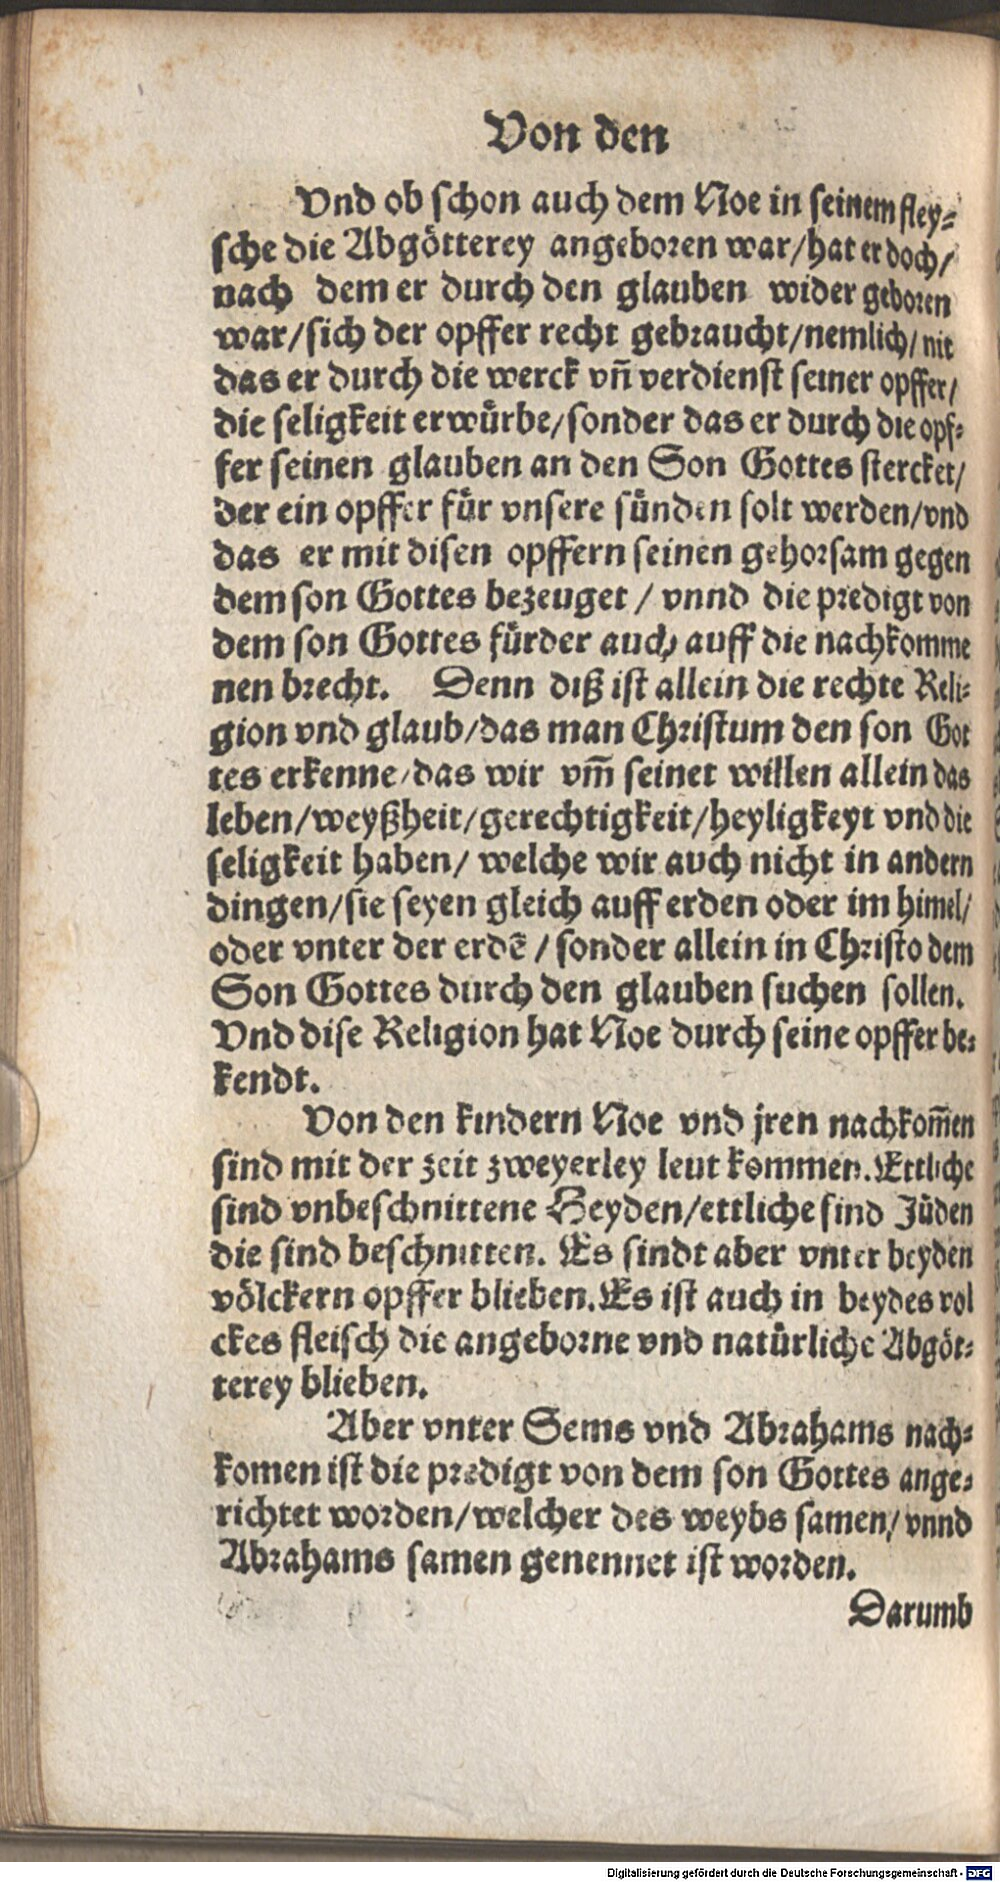 Von den
Vnd ob schon auch dem Noe in seinem fley-
sche die Abgötterey angeboren war/hat er doch/
nach dem er durch den glauben wider geboren
war/sich der opffer recht gebraucht/nemlich/nit
das er durch die werck vñ verdienst seiner opffer/
die seligkeit erwürbe/sonder das er durch die opf-
fer seinen glauben an den Son Gottes stercket/
der ein opffer für vnsere sünden solt werden/vnd
das er mit disen opffern seinen gehorsam gegen
dem son Gottes bezeuget / vnnd die predigt von
dem son Gottes fürder auch auff die nachkomme
nen brecht. Denn diß ist allein die rechte Reli-
gion vnd glaub/das man Christum den son Got
tes erkenne/das wir vm̃ seinet willen allein das
leben/weyßheit/gerechtigkeit/heyligkeyt vnd die
seligkeit haben/ welche wir auch nicht in andern
dingen/sie seyen gleich auff erden oder im himel/
oder vnter der erdẽ / sonder allein in Christo dem
Son Gottes durch den glauben suchen sollen.
Vnd dise Religion hat Noe durch seine opffer be-
kendt.
Von den kindern Noe vnd jren nachkom̃en
sind mit der zeit zweyerley leut kommen. Ettliche
sind vnbeschnittene Heyden/ettliche sind Jüden
die sind beschnitten. Es sindt aber vnter beyden
völckern opffer blieben. Es ist auch in beydes vol
ckes fleisch die angeborne vnd natürliche Abgöt-
terey blieben.
Aber vnter Sems vnd Abrahams nach-
komen ist die predigt von dem son Gottes ange-
richtet worden/welcher des weybs samen/ vnnd
Abrahams samen genennet ist worden.
Darumb
Digitalisierung gefördert durch die Deutsche Forschungsgemeinschaft - DFG